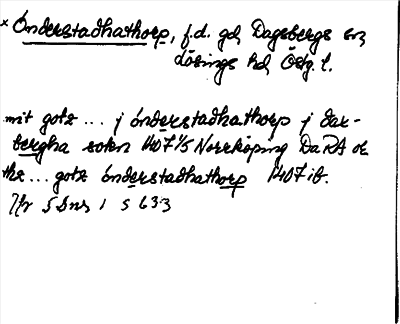 × Ónderstadhathorp, f.d. gd, Dagsbergs sn,
Lösings hd, Östg. l.
mit gotz ... j ónderstadhathorp j Dax-
bergha sokn 1407 1/5 Norrköping DaRA or
thz ... gotz ónderstadhathorp 1407 ib.
Jfr SDns 1 s 633